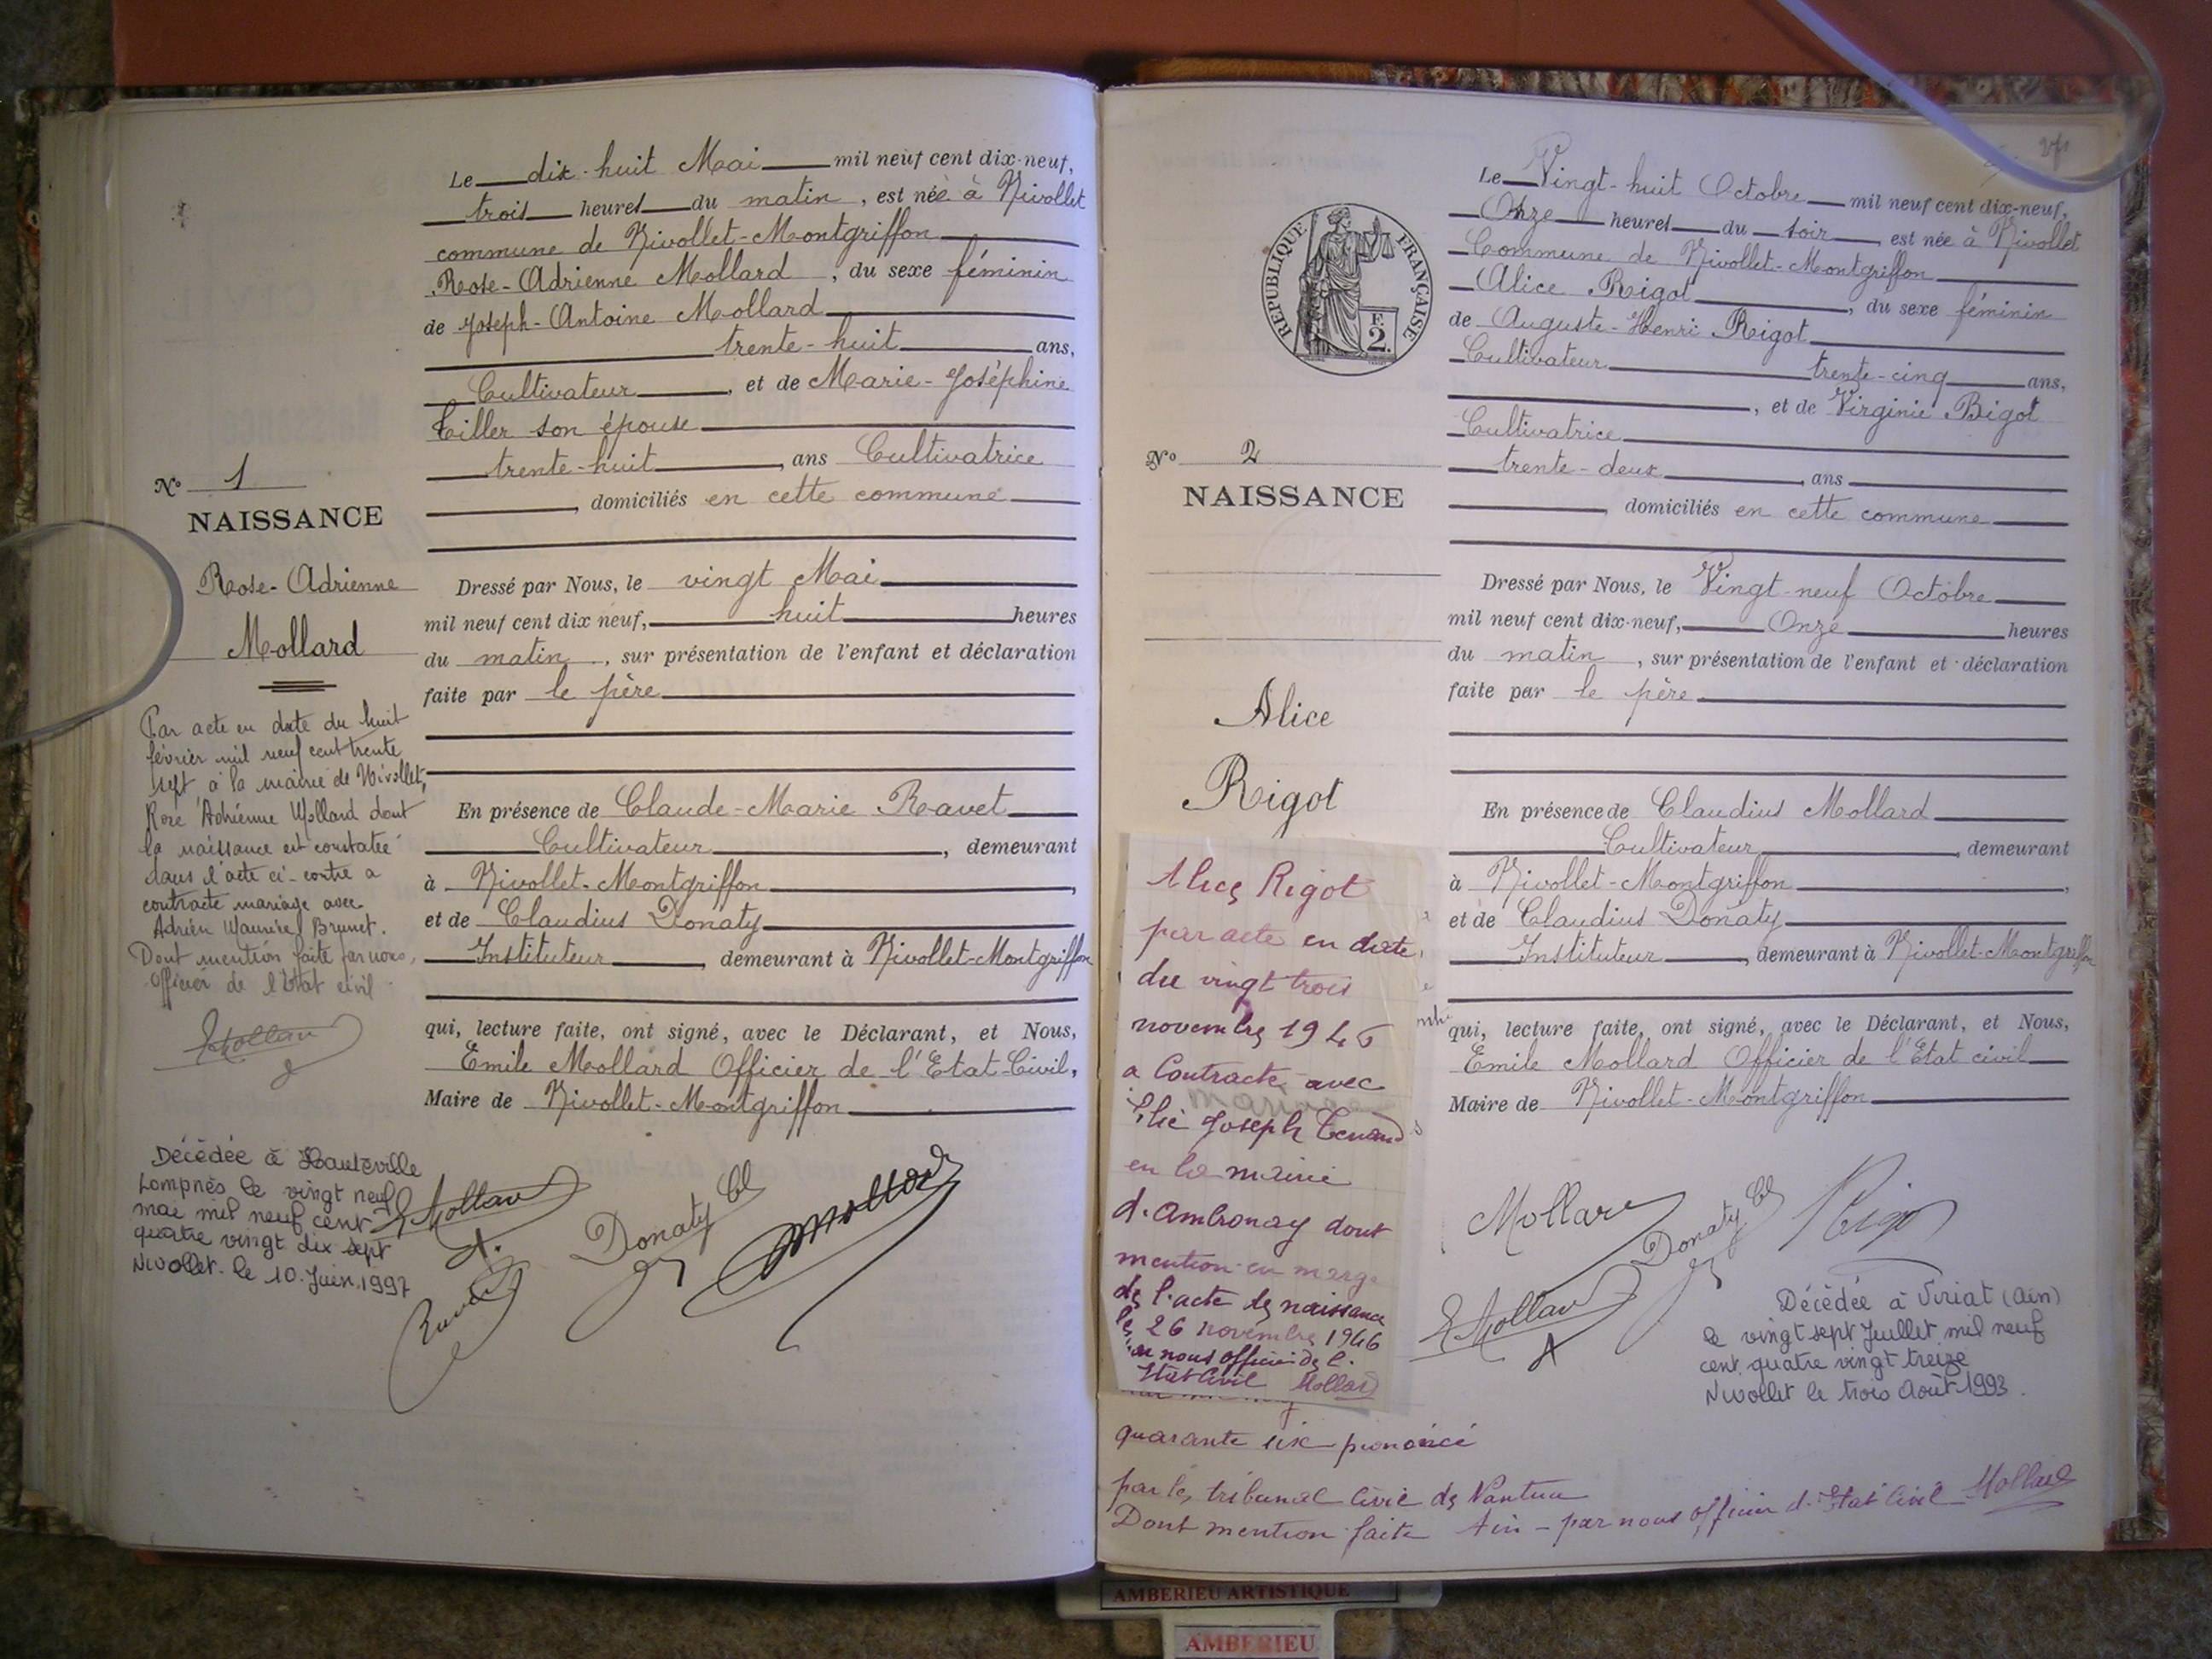 Le dix-huit Mai mil neuf cent dix-neuf,
trois heures du matin, est née à Nivollet
commune de Nivollet-Montgriffon
Rose-Adrienne Mollard, du sexe féminin
de Joseph-Antoine Mollard
trente-huit ans,
Cultivateur, et de Marie-Joséphine
Tiller son épouse
trente-huit, ans Cultivatrice
, domiciliés en cette commune
Dressé par Nous, le vingt Mai
mil neuf cent dix neuf, huit heures
du matin, sur présentation de l'enfant et déclaration
faite par le père
En présence de Claude-Marie Ravet
Cultivateur, demeurant
à Nivollet-Montgriffon,
et de Claudius Donaty
Instituteur, demeurant à Nivollet-Montgriffon
qui, lecture faite, ont signé, avec le Déclarant, et Nous,
Emile Mollard Officier de l'Etat-Civil,
Maire de Nivollet-Montgriffon
E Mollard
Donaty Cl
Mollard
Ravet
No 1
NAISSANCE
Rose-Adrienne
Mollard
Par acte en date du huit
février mil neuf cent trente
sept, à la mairie de Nivollet,
Rose Adrienne Mollard dont
la naissance est constatée
dans l'acte ci-contre a
contracté mariage avec
Adrien Maurice Brunet.
Dont mention faite par nous,
Officier de l'Etat civil
Mollard
Décédée à Hauteville
Lompnès le vingt neuf
mai mil neuf cent
quatre vingt dix sept
Nivollet. le 10. Juin. 1997
Le Vingt-huit Octobre mil neuf cent dix-neuf,
Onze heures du soir, est née à Nivollet
Commune de Nivollet-Montgriffon
Alice Rigot, du sexe féminin
de Auguste-Henri Rigot
Cultivateur trente-cinq ans,
, et de Virginie Bigot
Cultivatrice
trente-deux, ans
, domiciliés en cette commune
Dressé par Nous, le Vingt-neuf Octobre
mil neuf cent dix-neuf, Onze heures
du matin, sur présentation de l'enfant et déclaration
faite par le père
En présence de Claudius Mollard
Cultivateur, demeurant
à Nivollet-Montgriffon,
et de Claudius Donaty
Instituteur, demeurant à Nivollet-Montgriffon
qui, lecture faite, ont signé, avec le Déclarant, et Nous,
Emile Mollard Officier de l'Etat civil
Maire de Nivollet-Montgriffon
Mollard
Donaty Cl
Rigot
E Mollard
Décédée à Viriat (Ain)
le vingt sept Juillet mil neuf
cent quatre vingt treize
Nivollet le trois Août 1993.
REPUBLIQUE FRANÇAISE
F.
2.
No 2
NAISSANCE
Alice
Rigot
Alice Rigot
par acte en date
du vingt trois
novembre 1946
a Contracté avec
mariage
Elie Joseph Tenand
en la mairie
d'ambronay dont
mention en marge
de l'acte de naissance
le 26 novembre 1946
par nous officier de l'
Etat Civil Mollard
quarante six prononcé
par le tribunal Civil de Nantua
Dont mention faite Ain - par nous officier d'Etat Civil Mollard
AMBERIEU ARTISTIQUE
AMBERIEU